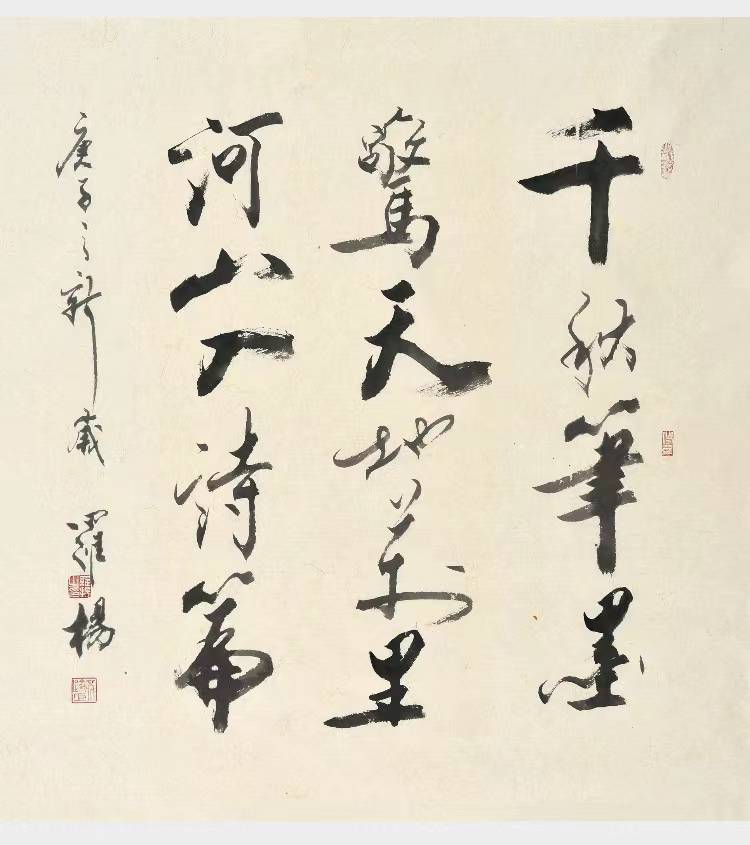 千秋筆墨
驚天地萬里
河山入詩篇
庚子之新歲 羅楊